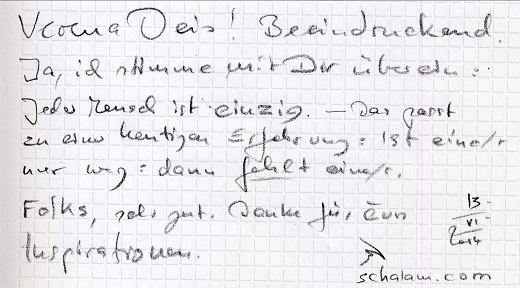 Verena Deis! Beeindruckend.
Ja, ich stimme mit Dir überein:
Jeder Mensch ist einzig. — Das passt
zu einer heutigen Erfahrung: Ist eine/r
nur weg: dann fehlt eine/r.
Folks, sehr gut. Danke für Eure
Inspirationen.
13
VI
2014
schalam.com